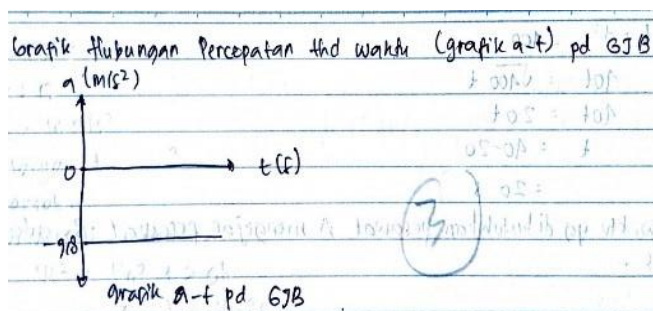 Grafik Hubungan Percepatan thd waktu (grafik a-t) pd GJB
a (m/s²)
0
t(s)
3
-9,8
grafik a-t pd GJB